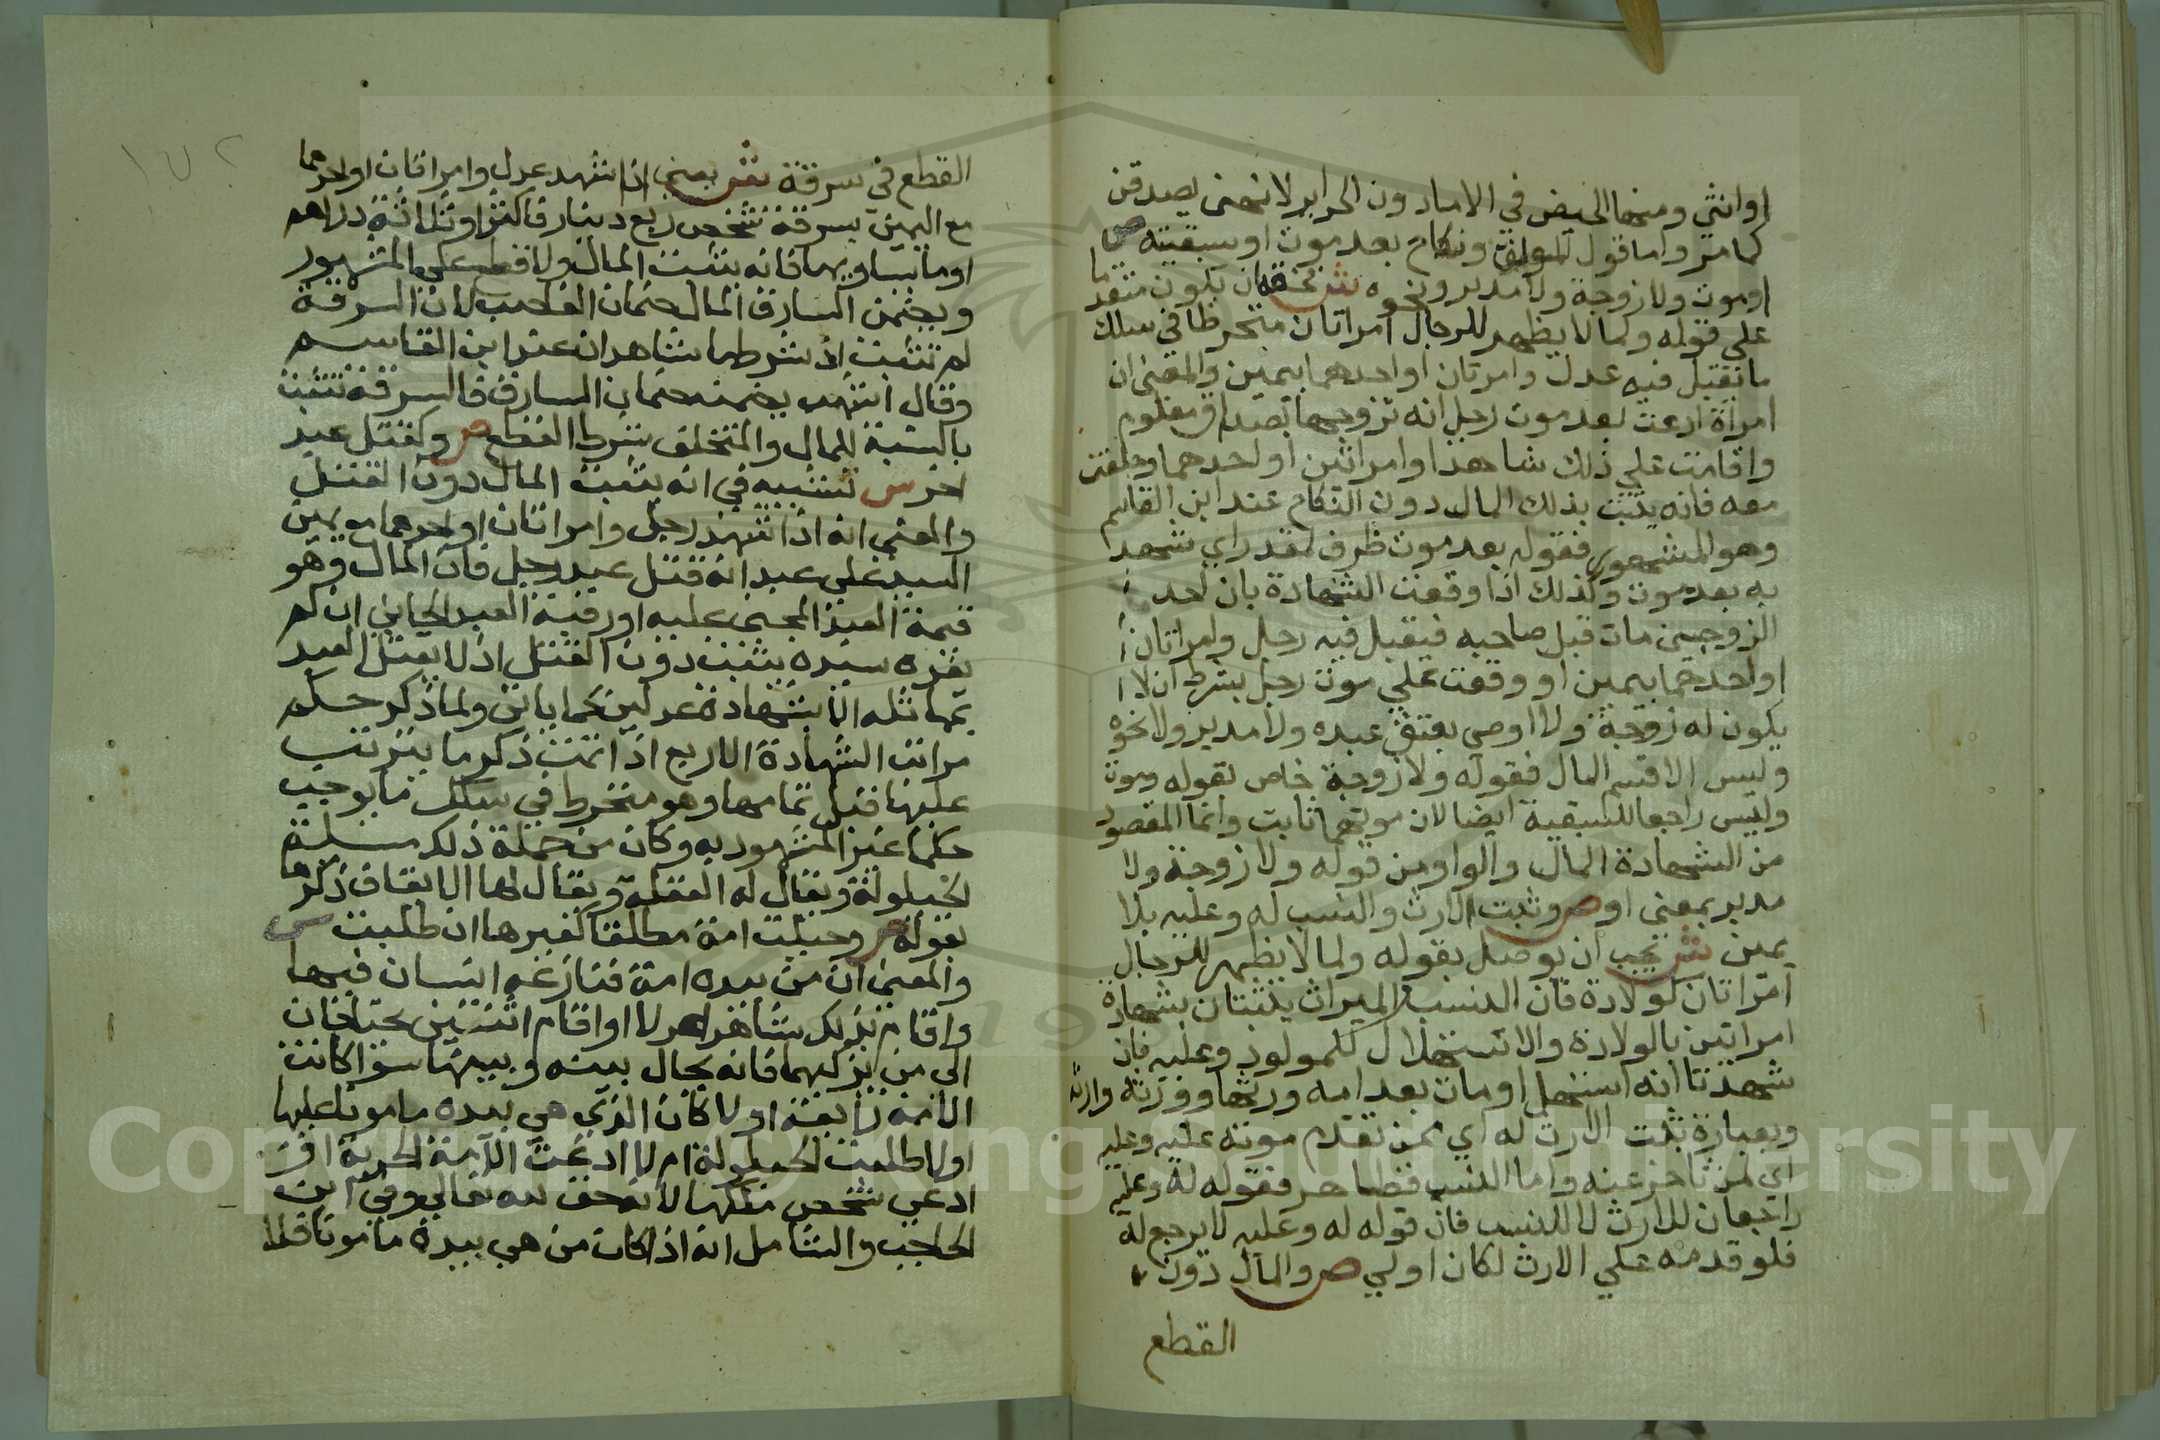 او انثى ومنها الحيض في الاما دون الحراير لانهنى يصدقن
كما مر واما قول المولق ونكاح بعد موت او سبقيته ص
او موت ولا زوجة ولا مدبر ونحوه ش تخفه ان يكون متقدما
على قوله ولما لا يظهر للرجال امراتان منخرطا في سلك
ما تقبل فيه عدل وامرتان او احدهما بيمين والمعنى ان
امراة ادعت بعد موت رجل انه تزوجها بصداق معلوم
واقامت على ذلك شاهدا وامراتين او احدهما وحلفت
معه فانه يثبت بذلك المال دون النكاح عند ابن القاسم
وهو المشهور فقوله بعد موت ظرف لمقدر اي شهد
به بعد موت وكذلك اذا وقعت الشهادة بان احد
الزوجين مات قبل صاحبه فيقبل فيه رجل وامراتان
او احدهما بيمين او وقعت على موت رجل بشرط ان لا
يكون له زوجة ولا اوصى بعتق عبده ولا مدبر ولا نحوه
وليس الا قسم المال فقوله ولا زوجة خاص بقوله وموت
وليس راجعا للسبقية ايضا لان موتهما ثابت وانما المقصود
من الشهادة المال والواو من قوله ولا زوجة ولا
مدبر بمعنى او ص وثبت الارث والنسب له وعليه بلا
يمين ش يجب ان يوصل بقوله ولما لا يظهر للرجال
امراتان كولادة فان النسب والميراث يثبتان بشهادة
امراتين بالولادة والاستهلال للمولود وعليه فان
شهدتا انه استهل او مات بعد امه ورثها وورثه وارثه
وبعبارة ثبت الارث له اي ممن تقدم موته عليه وعليه
اي لمن تاخر عنه واما النسب فظاهر فقوله له وعليه
راجعان للارث لا للنسب فان قوله له وعليه لا يرجع له
فلو قدمه على الارث لكان اولى ص والمال دون
القطع
١٧٢
القطع في سرقة ش يعني اذا شهد عدل وامراتان او احدهما
مع اليمين بسرقة شخص ربع دينار فاكثر او ثلاثة دراهم
او ما يساويهما فانه يثبت المال ولا قطع على المشهور
ويضمن السارق المال ضمان الغاصب لان السرقة
لم تثبت اذ شرطها شاهدان عند ابن القاسم
وقال اشهب يضمنه ضمان السارق فالسرقة تثبت
بالنسبة للمال والمتخلف شرط القطع ص وكقتل عبد
اخر ش تشبيه في انه يثبت المال دون القتل
والمعنى انه اذا شهد رجل وامراتان او احدهما مع يمين
السيد على عبد انه قتل عبد رجل فان المال وهو
قيمة العبد المجنى عليه او رقبة العبد الجاني ان لم
يفده سيده يثبت دون القتل اذ لا يقتل العبد
بمماثله الا بشهادة عدلين كما ياتي ولما ذكر حكم
مراتب الشهادة الاربع اذا تمت ذكر ما يترتب
عليها قبل تمامها وهو منخرط في سلك ما يوجب
حكما غير المشهود به وكان من جملة ذلك مسئلة
الحيلولة ويقال له العقلة ويقال لها الايقاف ذكرها
بقوله ص وحيلت امة مطلقا كغيرها ان طلبت ش
والمعنى ان من بيده امة فنازعه انسان فيها
واقام بذلك شاهدا عدلا او اقام اثنين يحتاجان
الى من يزكيهما فانه يحال بينه وبينها سوا كانت
الامة رايعة او لا كان الذي هي بيده مامونا عليها
او لا طلبت الحيلولة ام لا ادعت الامة الحرية او
ادعى شخص ملكها لانه حق لله تعالى وفي ابن
الحاجب والشامل انه اذا كان من هي بيده مامونا فلا